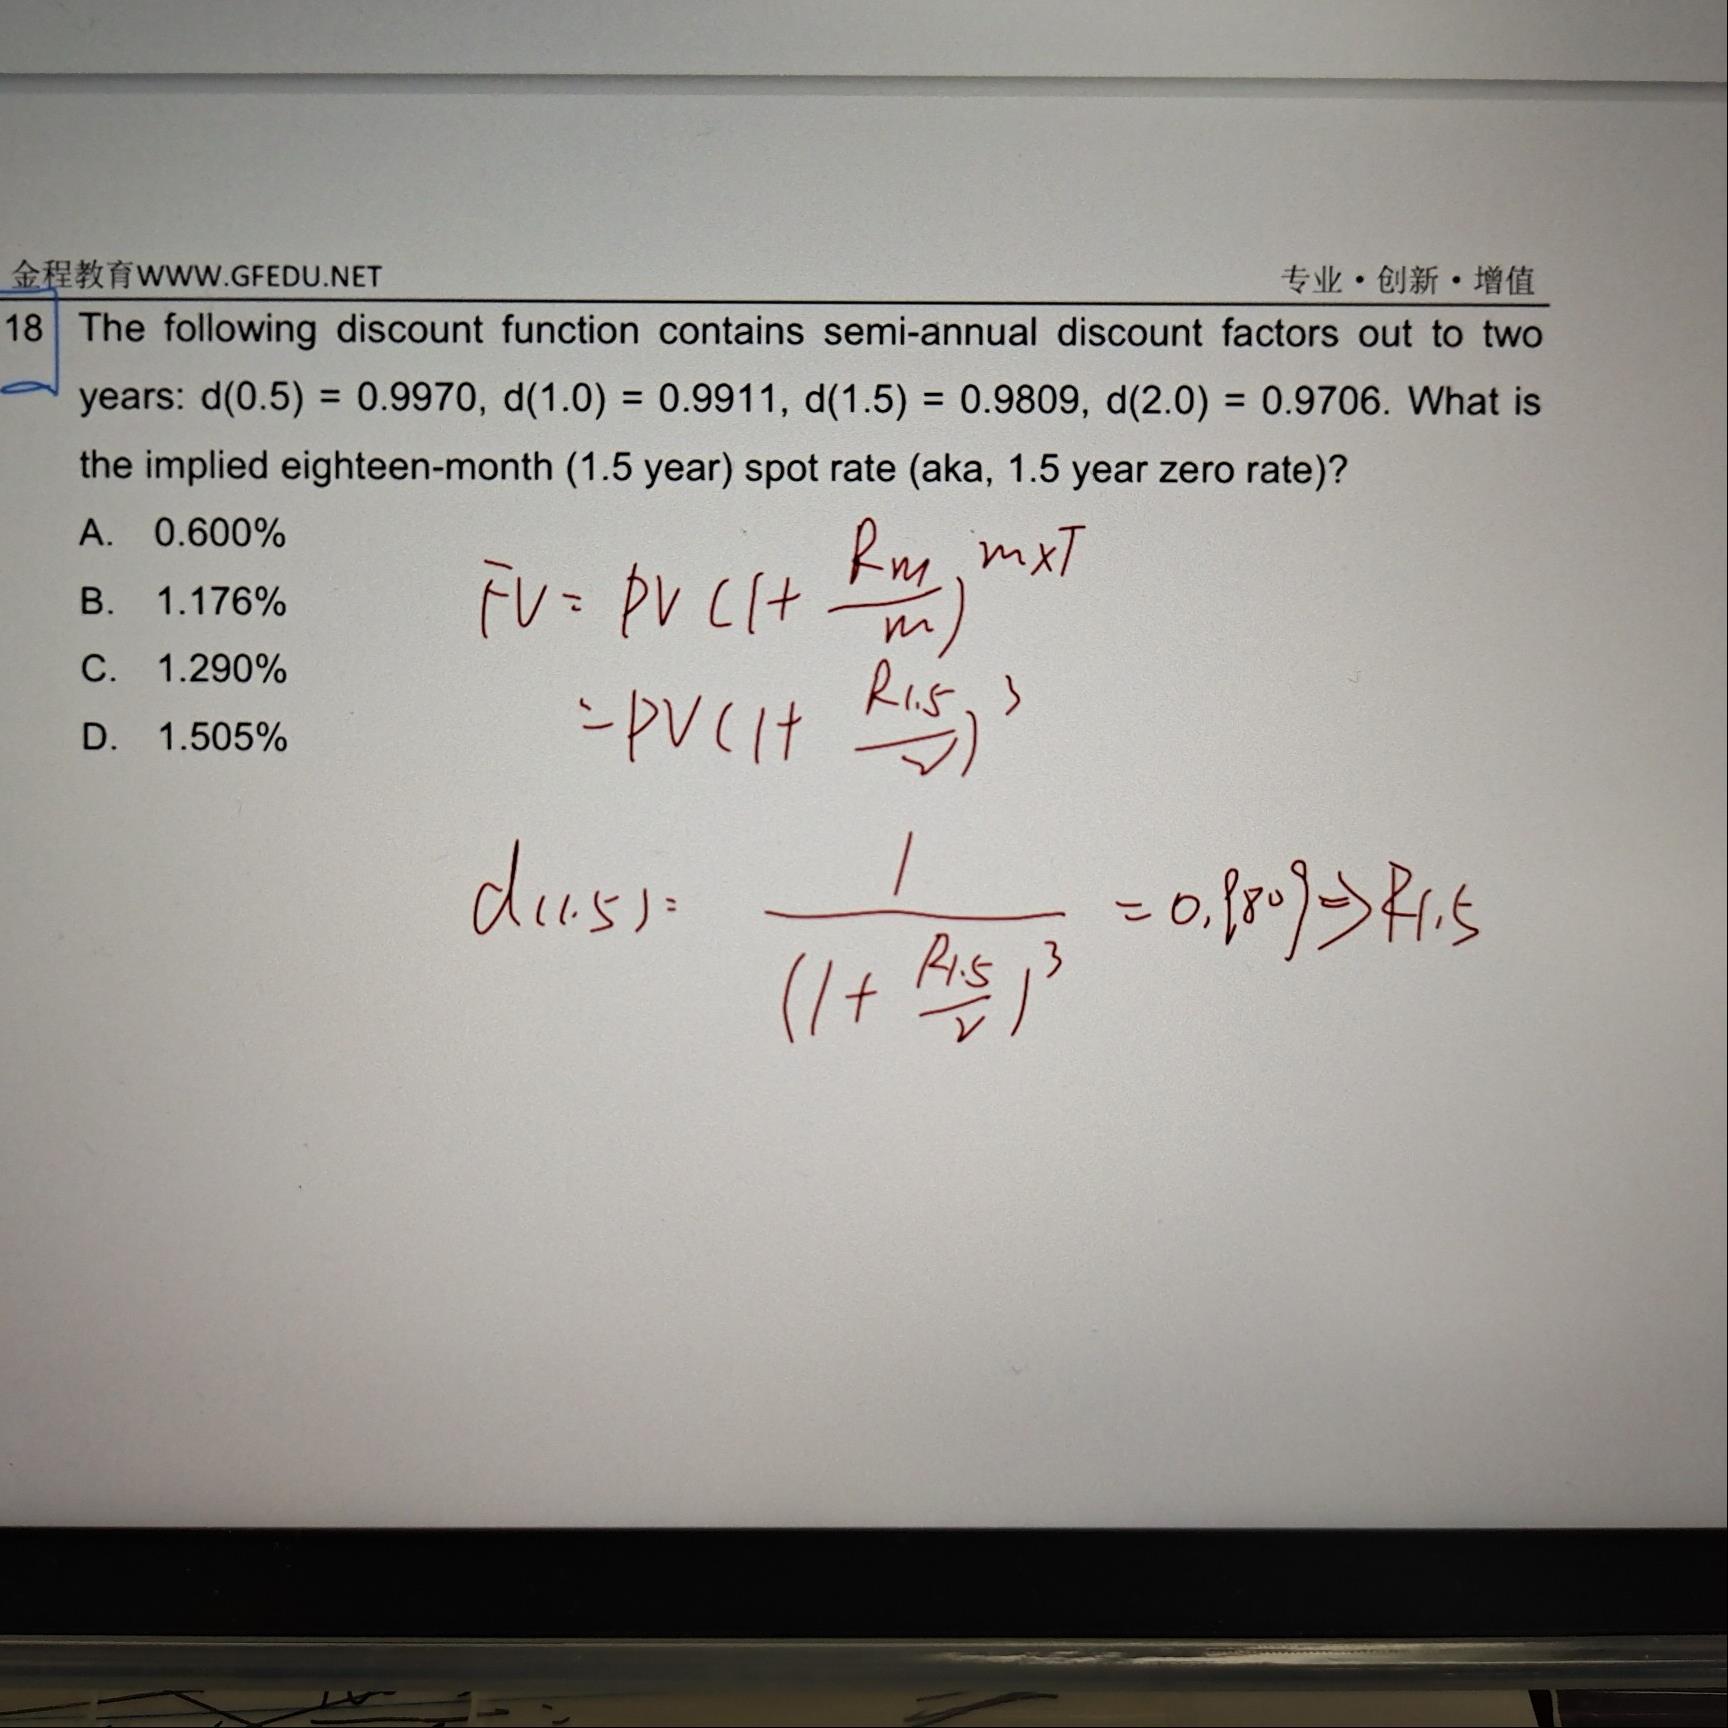 金程教育WWW.GFEDU.NET 专业·创新·增值
18 The following discount function contains semi-annual discount factors out to two
years: d(0.5) = 0.9970, d(1.0) = 0.9911, d(1.5) = 0.9809, d(2.0) = 0.9706. What is
the implied eighteen-month (1.5 year) spot rate (aka, 1.5 year zero rate)?
A. 0.600%
B. 1.176%
C. 1.290%
D. 1.505%
FV = PV (1 + Rm/m)^m×T
= PV (1 + R1.5/2)^3
d(1.5) = 1/(1 + R1.5/2)^3 = 0.9809 ⇒ R1.5